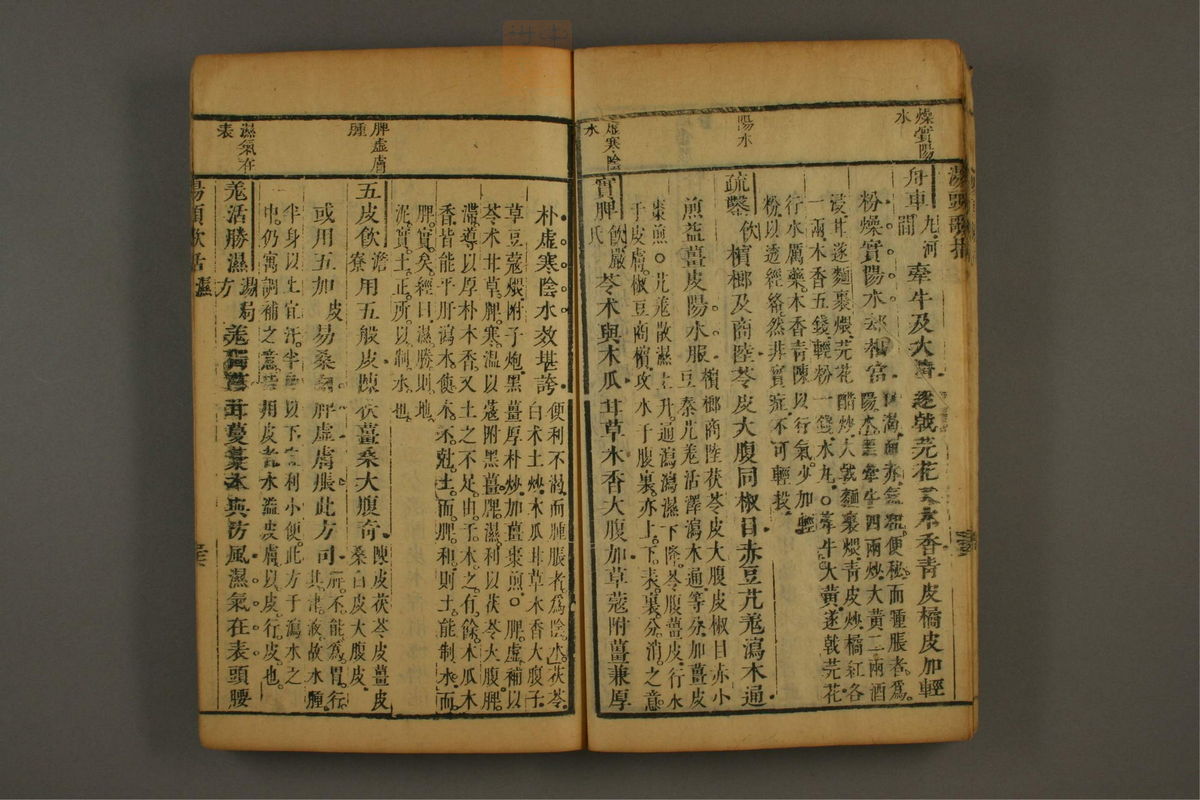 湯頭歌括
燥實陽水
舟車丸河間 牽牛及大黃 遂戟芫花又木香 青皮橘皮加輕
粉燥實陽水却相當 口渴面赤氣粗便秘而腫脹者為
陽水黑牽牛四兩炒大黃二兩酒
浸甘遂麵裹煨芫花醋炒大戟麵裹煨青皮炒橘紅各
一兩木香五錢輕粉一錢水丸○牽牛大黃遂戟芫花
行水厲藥木香青陳以行氣少加輕
粉以透經絡然非實症不可輕投
陽水
疏鑿飲檳榔及商陸苓皮大腹同椒目赤豆艽羗瀉木通
煎益薑皮陽水服 檳榔商陸茯苓皮大腹皮椒目赤小
豆秦艽羗活澤瀉木通等分加薑皮
棗煎○艽羗散濕上升通瀉瀉濕下降苓腹薑皮行水
于皮膚椒豆商檳攻水于腹裏亦上下表裏分消之意
虛寒陰水
實脾飲嚴氏 苓术與木瓜甘草木香大腹加草蔻附薑兼厚
朴虛寒陰水效堪誇 便利不渴而腫脹者為陰水茯苓
白术土炒木瓜甘草木香大腹子
草豆蔻煨附子炮黑薑厚朴炒加薑棗煎○脾虛補以
苓术甘草脾寒溫以蔻附黑薑脾濕利以茯苓大腹脾
滯導以厚朴木香又土之不足由于木之有餘木瓜木
香皆能平肝瀉水使木不尅土而脾和則土能制水而
脾實矣經曰濕勝則地
泥實土正所以制水也
脾虛膚腫
五皮飲澹寮 用五般皮陳茯薑桑大腹奇 陳皮茯苓皮薑皮
桑白皮大腹皮
或用五加皮易桑白脾虛膚脹此方司 脾不能為胃行
其津液故水腫
半身以上宜汗半身以下宜利小便此方于瀉水之
中仍寓調補之意皆用皮者水溢皮膚以皮行皮也
濕氣在表
羗活勝濕湯局方 羗獨芎甘蔓藁本與防風濕氣在表頭腰